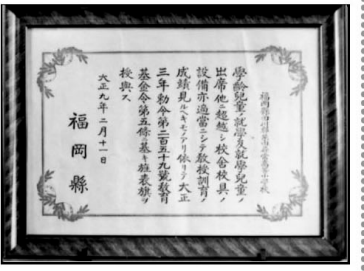 學齡兒童ノ就學及就學兒童ノ
出席他ニ超越シ校舍校具ノ
設備亦適當ニシテ教授訓育ノ
成績見ルヘキモノアリ依リテ大正
三年勅令第二百五十九號教育
基金令第五條ニ基キ旌表旗ヲ
授與ス
大正九年二月十一日
福岡縣